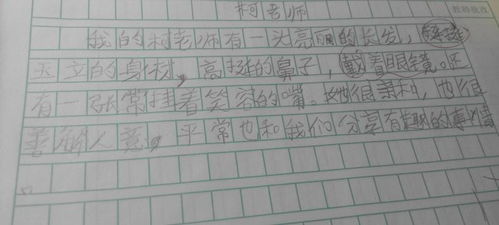 柯老师
我的柯老师有一头亮丽的长发,
玉立的身材,高挺的鼻子,戴着眼镜。还
有一张常挂着笑容的嘴。她很温和,也很
善解人意,平常也和我们分享有趣的事情